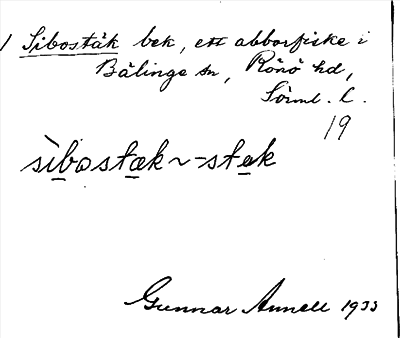 1 Sibostäk bek, ett abborfiske i
Bälinge sn, Rönö hd,
Sörml. L.
19
sìbostæk ~ =stek
Gunnar Annell 1933